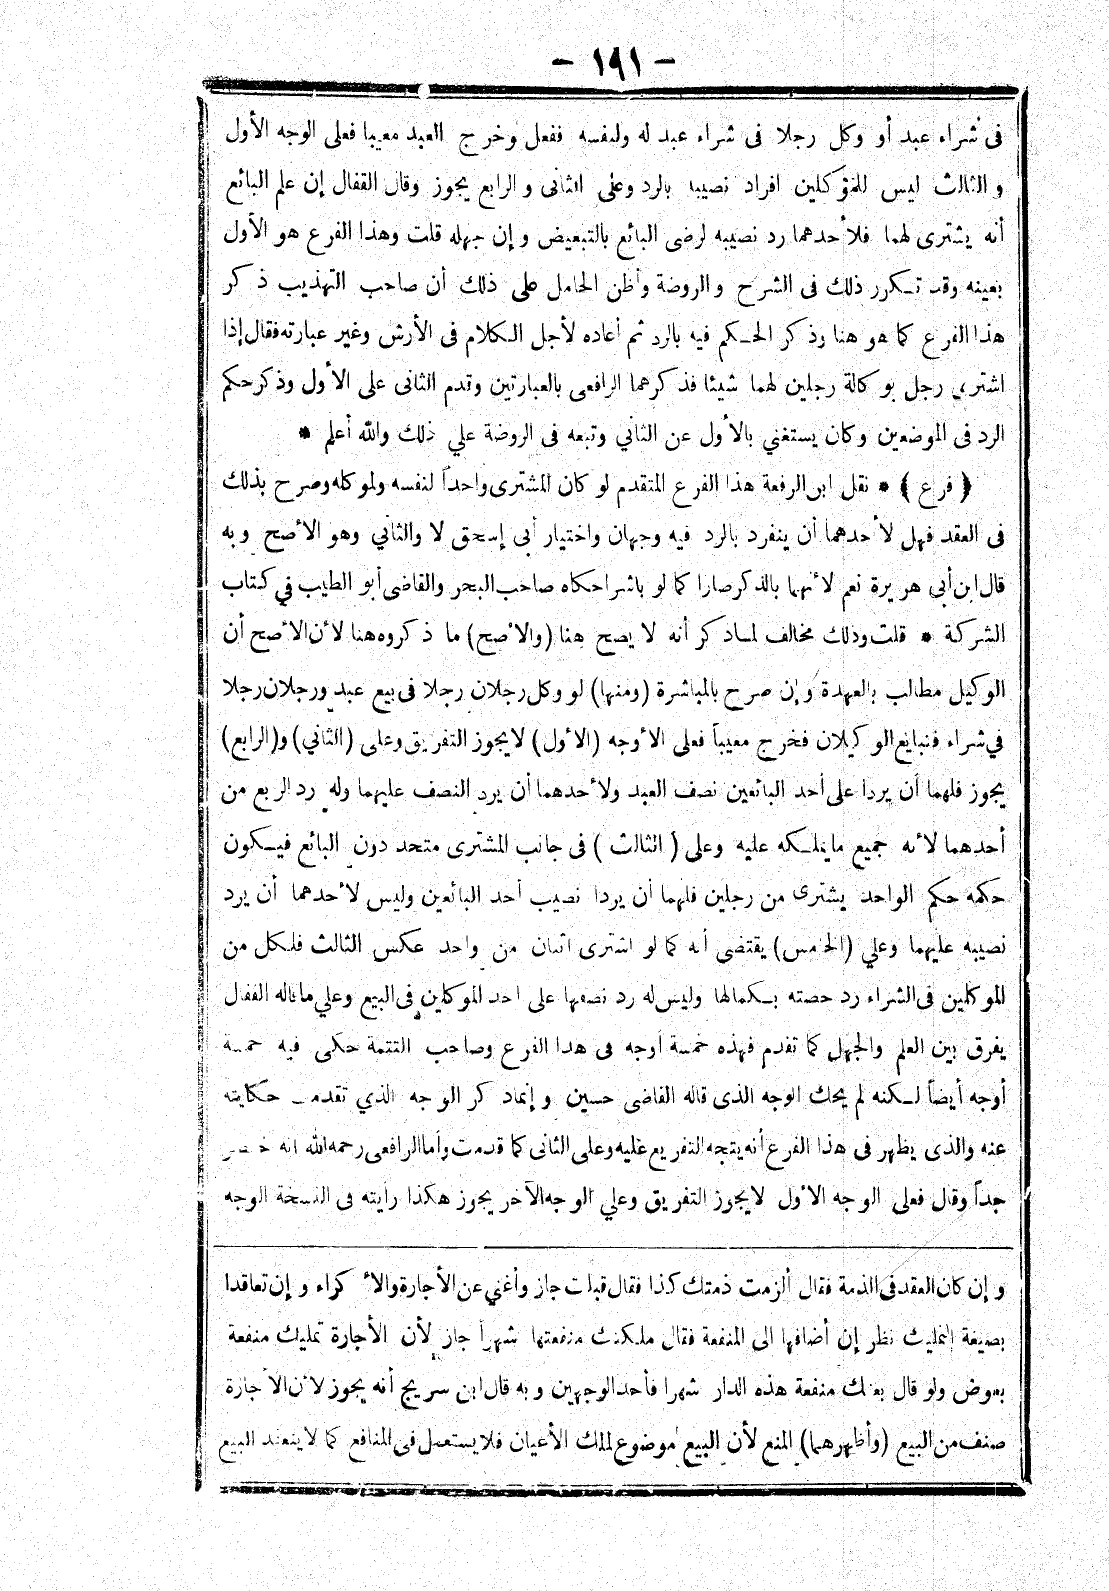 - ١٩١ -
فى شراء عبد أو وكل رجلا فى شراء عبد له ولنفسه ففعل وخرج العبد معيبا فعلى الوجه الأول
والثالث ليس للمؤكلين افراد نصيبه بالرد وعلى الثانى والرابع يجوز وقال القفال إن علم البائع
أنه يشترى لهما فلأحدهما رد نصيبه لرضى البائع بالتبعيض وإن جهله قلت وهذا الفرع هو الأول
بعينه وقد تكرر ذلك فى الشرح والروضة وأظن الحامل على ذلك أن صاحب التهذيب ذكر
هذا الفرع كما هو هنا وذكر الحكم فيه بالرد ثم أعاده لأجل الكلام فى الأرش وغير عبارته فقال إذا
اشترى رجل بوكالة رجلين لهما شيئا فذكرهما الرافعى بالعبارتين وقدم الثانى على الأول وذكر حكم
الرد فى الموضعين وكان يستغني بالأول عن الثاني وتبعه فى الروضة علي ذلك والله أعلم *
﴿ فرع ﴾ * نقل ابن الرفعة هذا الفرع المتقدم لو كان المشترى واحداً لنفسه ولموكله وصرح بذلك
فى العقد فهل لأحدهما أن ينفرد بالرد فيه وجهان واختيار أبى إسحق لا والثاني وهو الأصح وبه
قال ابن أبى هريرة نعم لأنهما بالذكر صارا كما لو باشرا حكاه صاحب البحر والقاضى أبو الطيب في كتاب
الشركة * قلت وذلك مخالف لما سأذكر أنه لا يصح هنا (والأصح) ما ذكروه هنا لأن الأصح أن
الوكيل مطالب بالعهدة وإن صرح بالمباشرة (ومنها) لو وكل رجلان رجلا فى بيع عبد ورجلان رجلا
في شراء فتبايع الوكيلان فخرج معيباً فعلى الأوجه (الأول) لا يجوز التفريق وعلى (الثاني) و(الرابع)
يجوز فلهما أن يردا على أحد البائعين نصف العبد ولأحدهما أن يرد النصف عليهما وله رد الربع من
أحدهما لأنه جميع ما يملكه عليه وعلى (الثالث) فى جانب المشترى متحد دون البائع فيكون
حكمه حكم الواحد يشترى من رجلين فلهما أن يردا نصيب أحد البائعين وليس لأحدهما أن يرد
نصيبه عليهما وعلي (الخامس) يقتضى أنه كما لو اشترى اثنان من واحد عكس الثالث فلكل من
الموكلين فى الشراء رد حصته بكمالها وليس له رد نصفها على أحد الموكلين فى البيع وعلي ما قاله القفال
يفرق بين العلم والجهل كما تقدم فهذه خمسة أوجه فى هذا الفرع وصاحب التتمة حكى فيه خمسة
أوجه أيضاً لكنه لم يحك الوجه الذى قاله القاضى حسين وإنما ذكر الوجه الذي تقدمت حكايته
عنه والذى يظهر فى هذا الفرع أنه يتجه التفريع عليه وعلى الثانى كما قدمت وأما الرافعى رحمه الله انه
جداً وقال فعلى الوجه الأول لا يجوز التفريق وعلي الوجه الآخر يجوز هكذا رأيته فى النسخة الوجه
وإن كان العقد فى الذمة فقال ألزمت ذمتك كذا فقال قبلت جاز وأغني عن الأجارة والأكراء وإن تعاقدا
بصيغة التمليك نظر إن أضافها الى المنفعة فقال ملكتك منفعتها شهراً جاز لأن الأجارة تمليك منفعة
بعوض ولو قال بعتك منفعة هذه الدار شهرا فأحد الوجهين وبه قال ابن سريج أنه يجوز لأن الأجارة
صنف من البيع (وأظهرهما) المنع لأن البيع موضوع لملك الأعيان فلا يستعمل فى المنافع كما لا ينعقد البيع